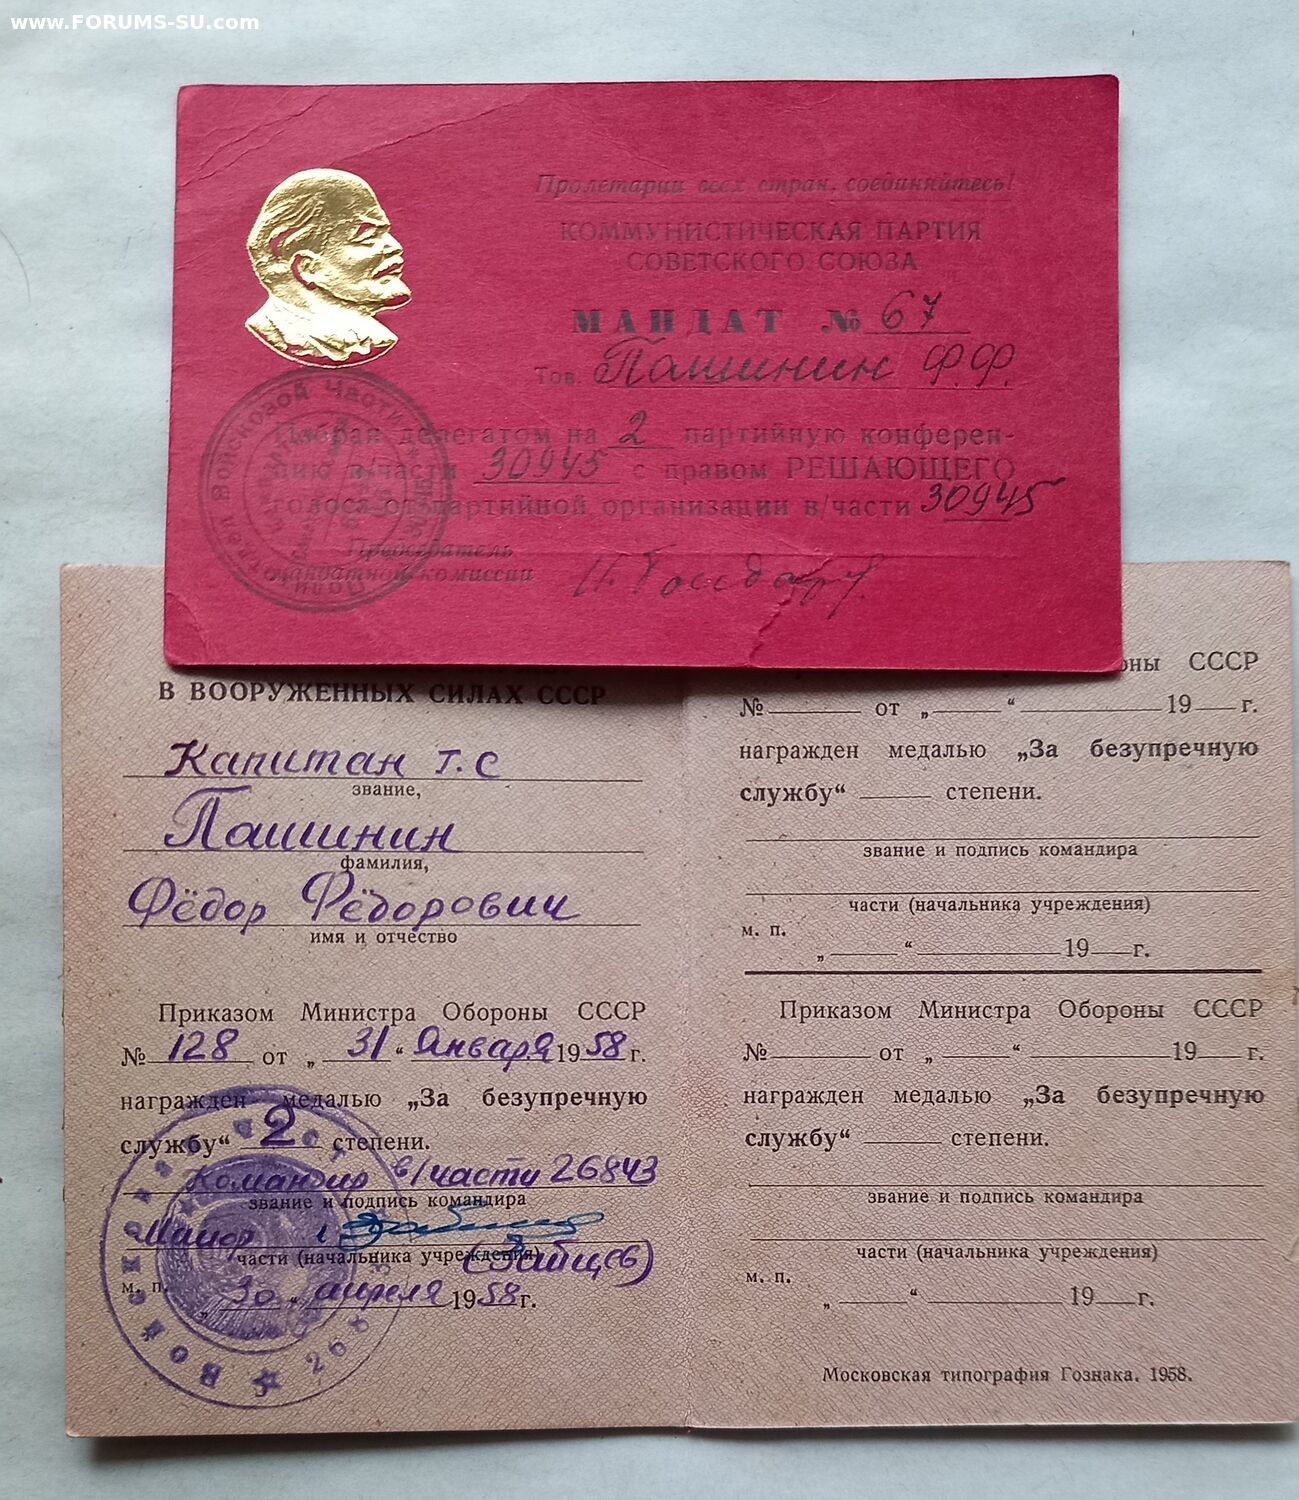 www.FORUMS-SU.com
Пролетарии всех стран, соединяйтесь!
КОММУНИСТИЧЕСКАЯ ПАРТИЯ
СОВЕТСКОГО СОЮЗА
МАНДАТ № 67
Тов. Пашинин Ф.Ф.
Избран делегатом на 2 партийную конферен-
цию в/части 30945 с правом РЕШАЮЩЕГО
голоса от партийной организации в/части 30945
Председатель
мандатной комиссии
Войсковой Части
В ВООРУЖЕННЫХ СИЛАХ СССР
Капитан т.с
звание,
Пашинин
фамилия,
Фёдор Фёдорович
имя и отчество
Приказом Министра Обороны СССР
№ 128 от „ 31 “ Января 1958 г.
награжден медалью „За безупречную
службу“ 2 степени.
Командир в/части 26843
звание и подпись командира
Майор (Зайцев)
части (начальника учреждения)
м. п.
„ 30 “ апреля 1958 г.
ны СССР
№ от „ “ 19 г.
награжден медалью „За безупречную
службу“ степени.
звание и подпись командира
части (начальника учреждения)
м. п.
„ “ 19 г.
Приказом Министра Обороны СССР
№ от „ “ 19 г.
награжден медалью „За безупречную
службу“ степени.
звание и подпись командира
части (начальника учреждения)
м. п.
„ “ 19 г.
Московская типография Гознака. 1958.